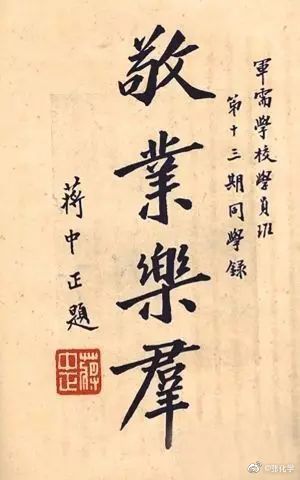 軍需學校學員班
第十三期同學錄
敬業樂羣
蔣中正題
蔣中正
@张化学